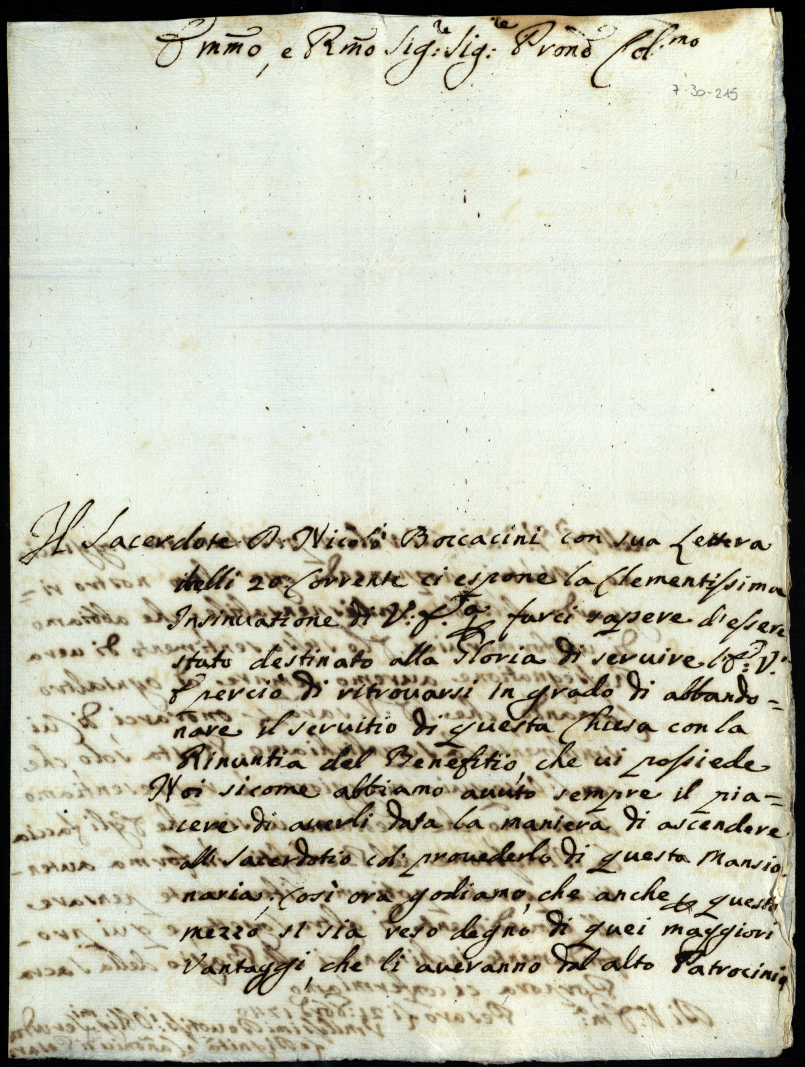 Emmo, e Rmo Sig:re Sig:re Prone Col:mo
7-30-215
Il Sacerdote D. Nicolò Boccacini con sua Lettera
delli 20: Corrente ci espone la Clementissima
Insinuatione di V: farci sapere d'essere
stato destinato alla Gloria di servire V:
e perciò di ritrovarsi in grado di abbando=
nare il servitio di questa Chiesa con la
Rinuntia del Benefitio, che vi possiede
Noi sicome abbiamo avuto sempre il pia=
cere di averli data la maniera di ascendere
al Sacerdotio col provederlo di questa Mansio-
naria; Così ora godiamo, che anche questo
mezzo si sia reso degno di quei maggiori
Vantaggi, che li averanno dal alto Patrocinio